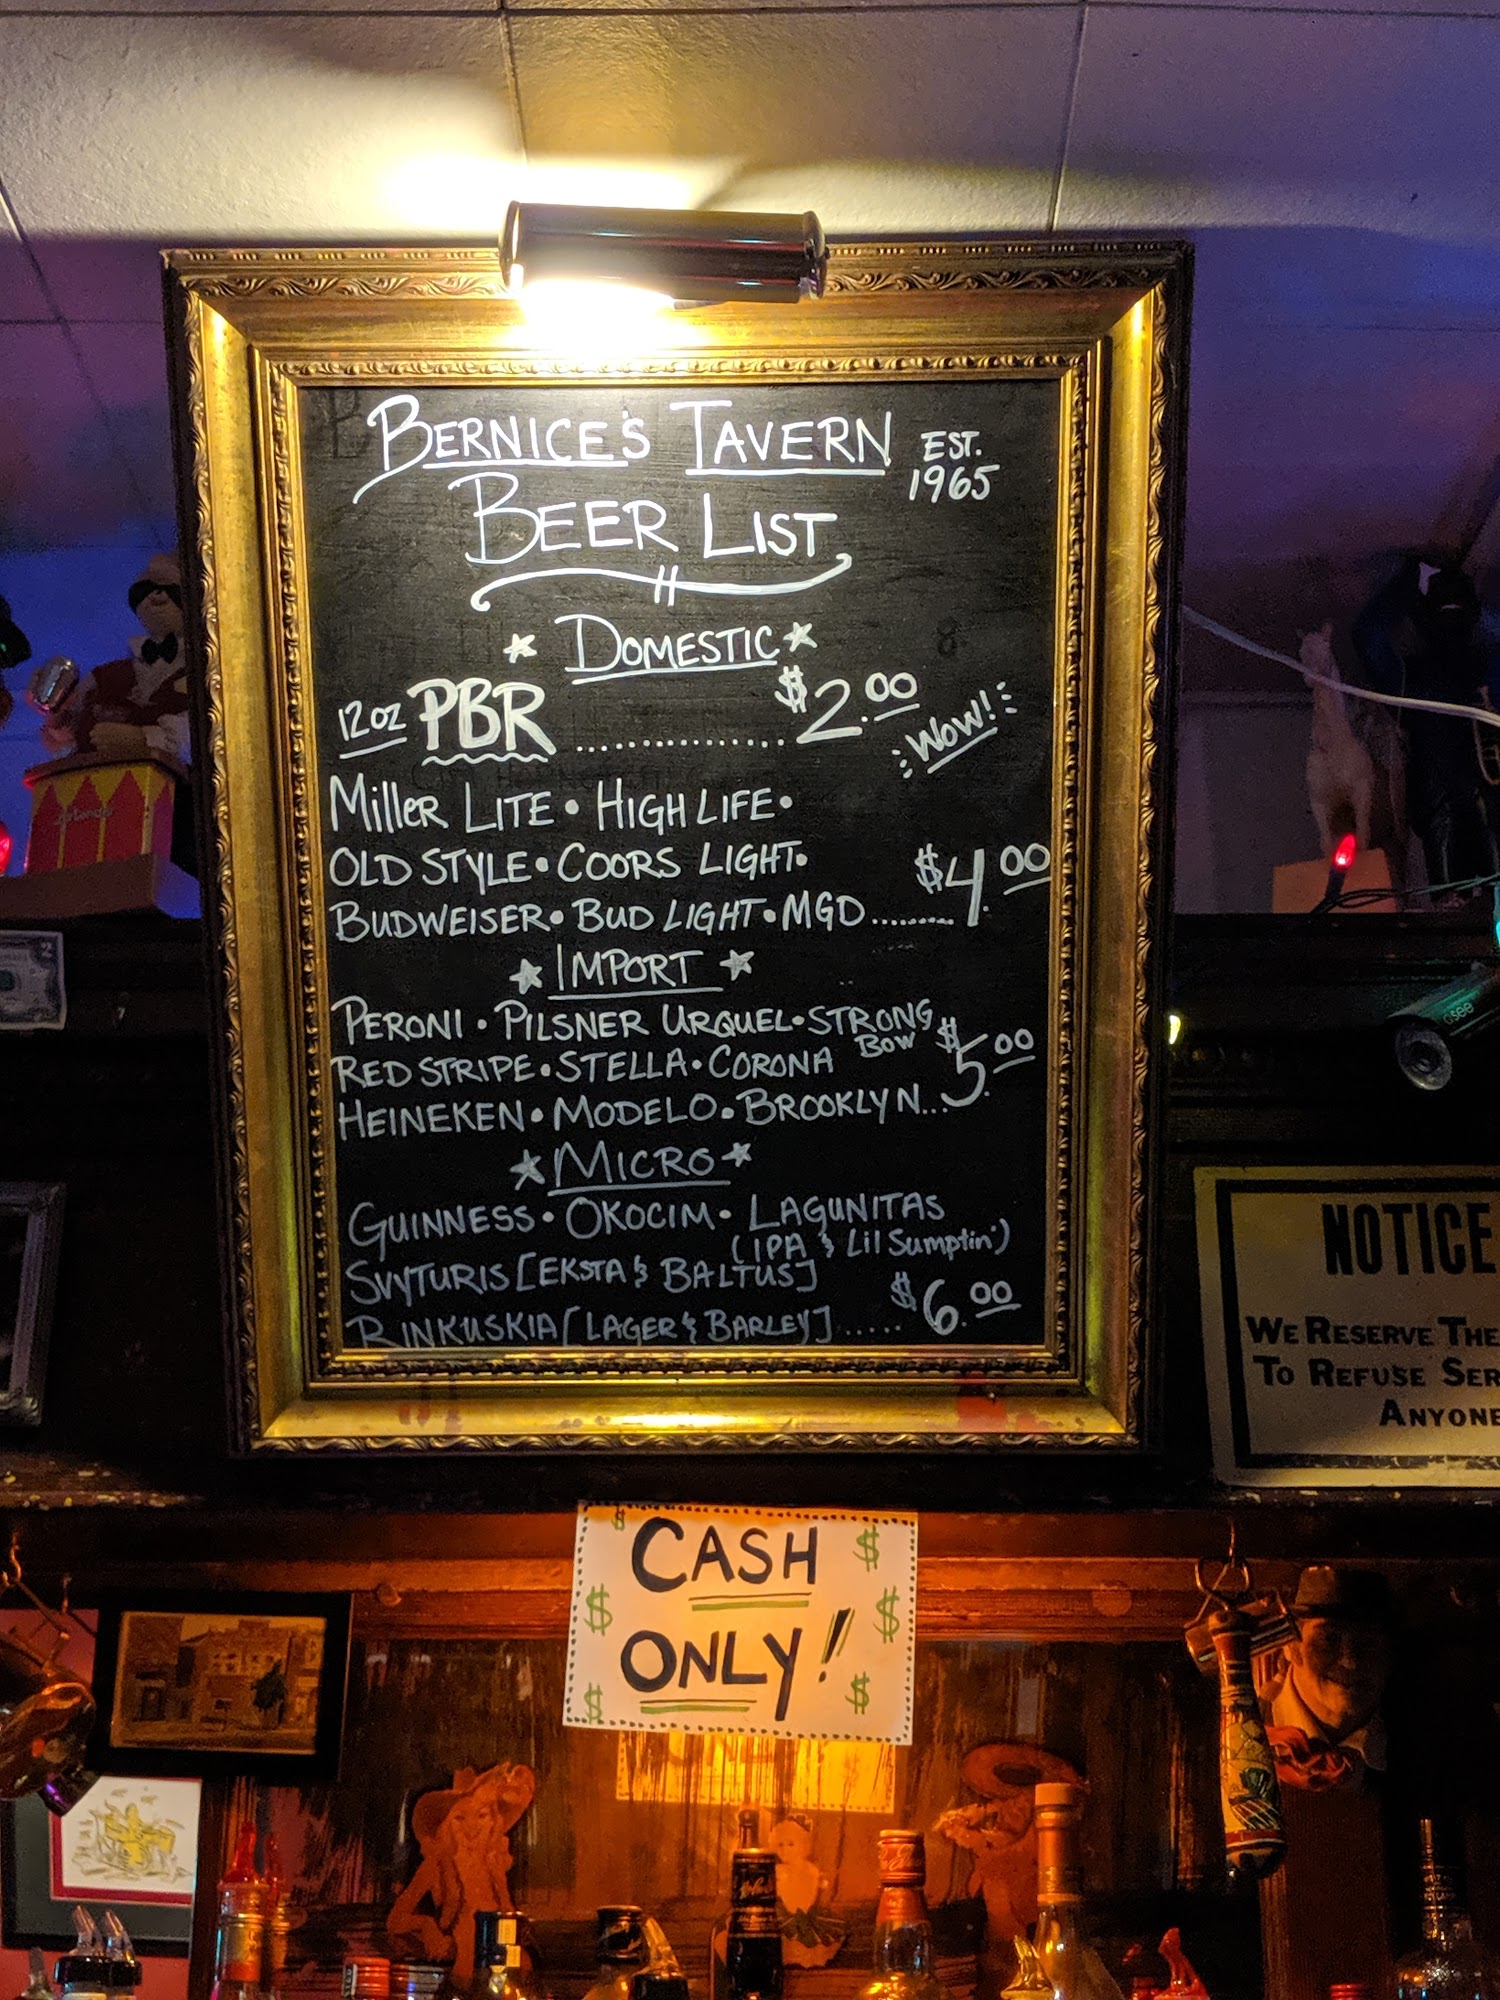 BERNICE'S TAVERN EST. 1965
BEER LIST
★ DOMESTIC ★
12 oz PBR ............... $2.00 WOW!
Miller LITE • HIGH LIFE •
OLD STYLE • COORS LIGHT •
BUDWEISER • BUD LIGHT • MGD ......... $4.00
★ IMPORT ★
PERONI • PILSNER URQUEL • STRONG BOW
RED STRIPE • STELLA • CORONA
HEINEKEN • MODELO • BROOKLYN... $5.00
★ MICRO ★
GUINNESS • OKOCIM • LAGUNITAS
(IPA & Lil Sumptin')
SVYTURIS [EKSTA & BALTUS]
RINKUSKIA [LAGER & BARLEY] ..... $6.00
NOTICE
WE RESERVE THE
TO REFUSE SER
ANYONE
$ CASH $
$ ONLY! $
$ $